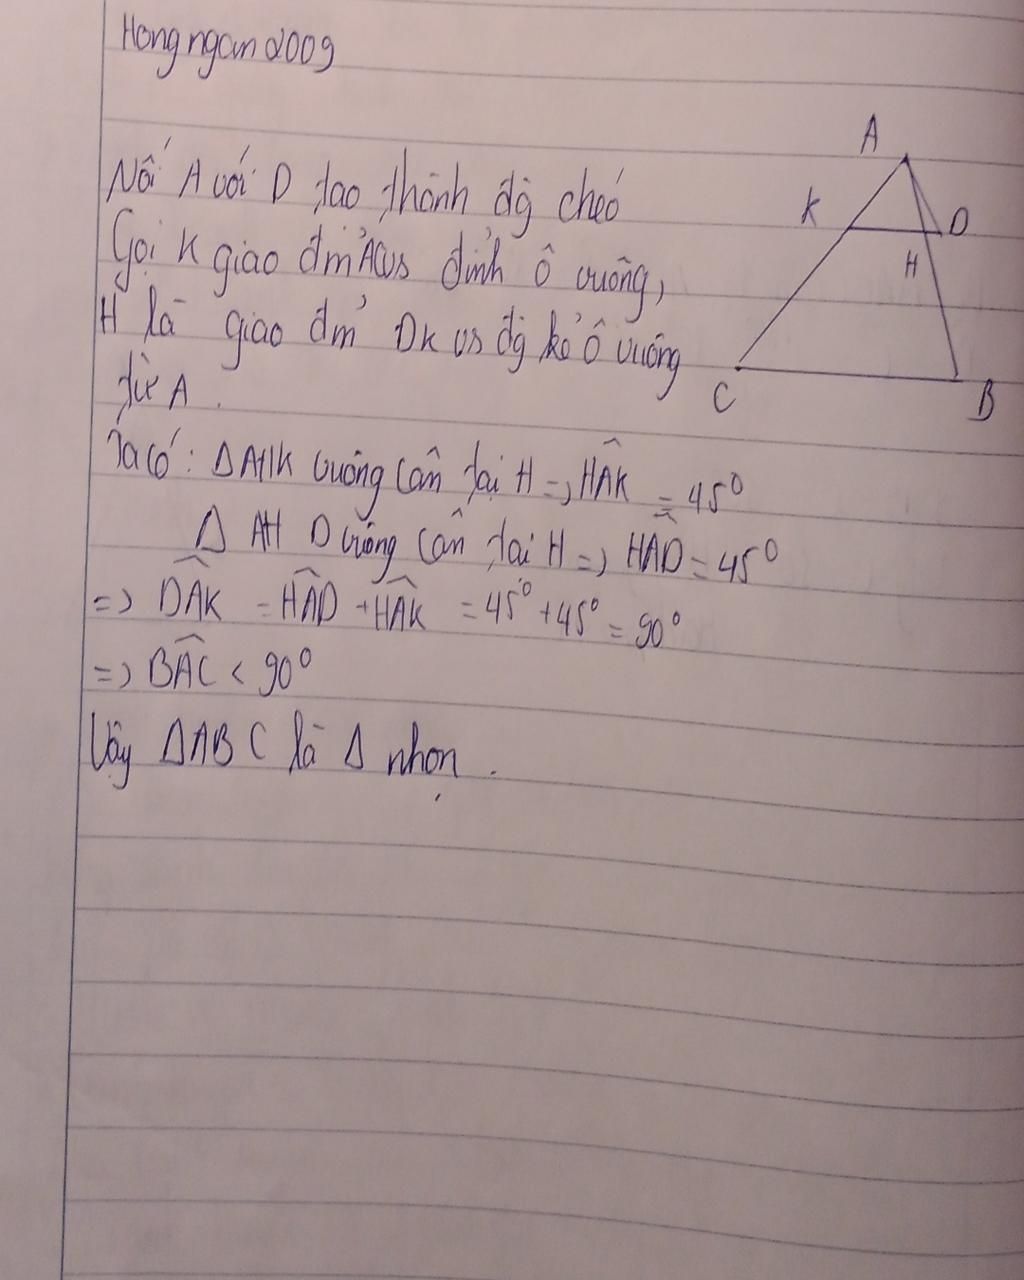 Hongngan2009
Nối A với D tạo thành đg chéo
Gọi K giao đm̉ AC vs đỉnh ô vuông,
H là giao đm̉ DK vs đg kẻ ô vuông
từ A.
Ta có: ΔAHK vuông cân tại H => HÂK = 45°
Δ AHD vuông cân tại H => HÂD = 45°
=> DÂK = HÂD + HÂK = 45° + 45° = 90°
=> BÂC < 90°
Vậy ΔABC là Δ nhọn.
A
K
D
H
C
B